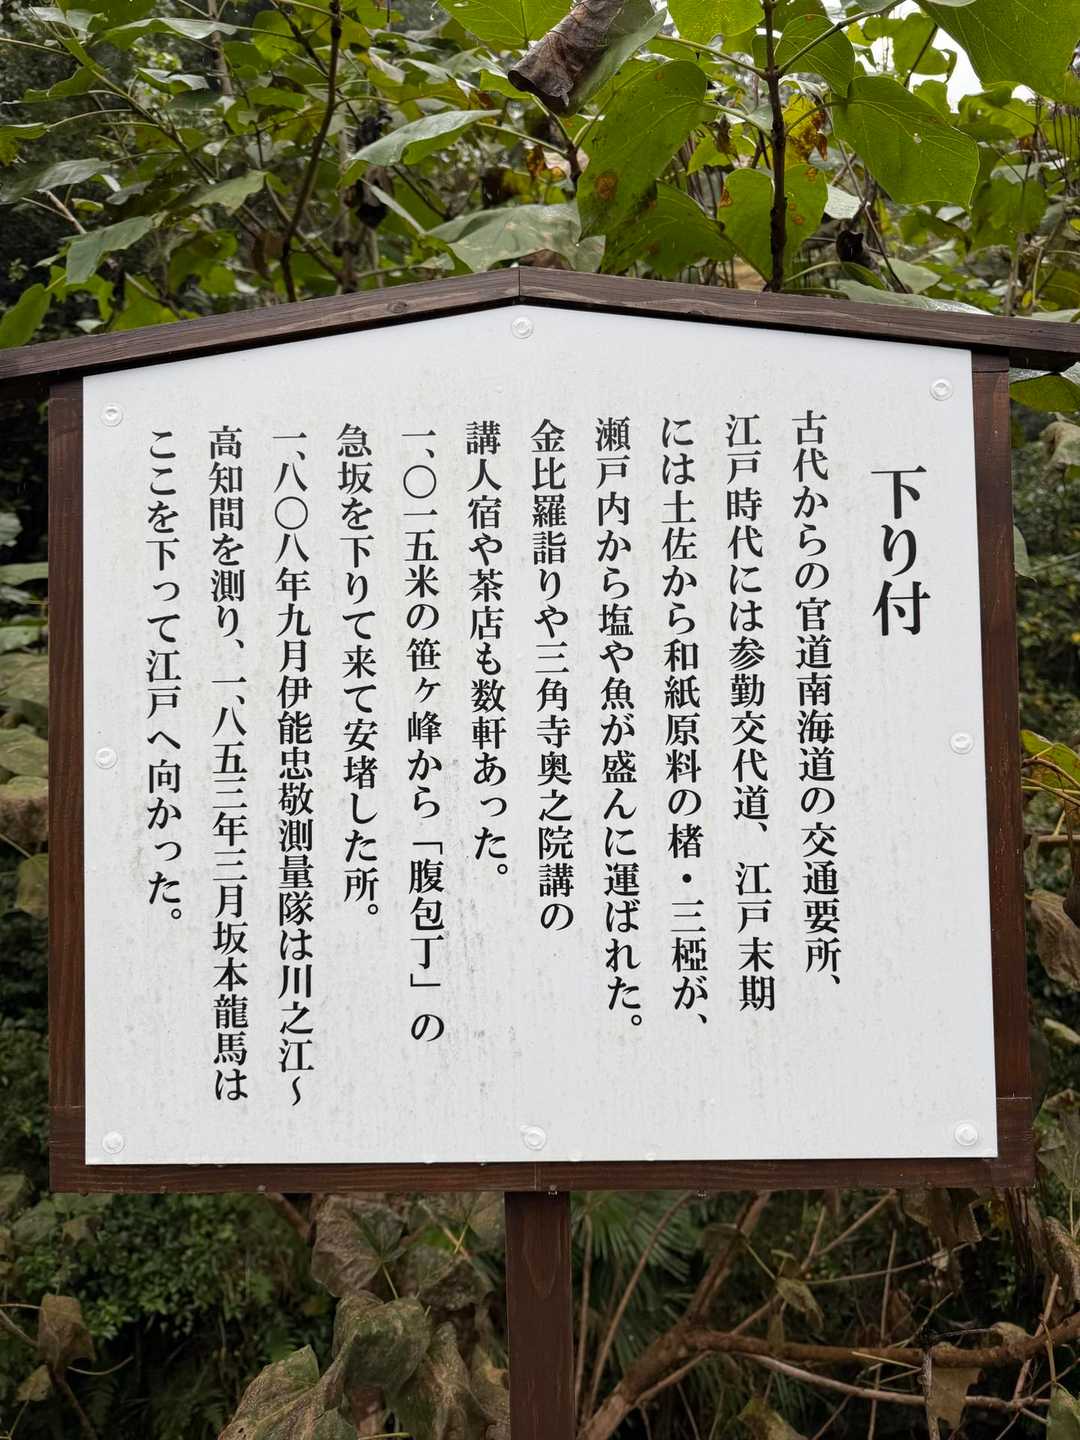 下り付
古代からの官道南海道の交通要所、
江戸時代には参勤交代道、江戸末期
には土佐から和紙原料の楮・三椏が、
瀬戸内から塩や魚が盛んに運ばれた。
金比羅詣りや三角寺奥之院講の
講人宿や茶店も数軒あった。
一、〇一五米の笹ヶ峰から「腹包丁」の
急坂を下りて来て安堵した所。
一、八〇八年九月伊能忠敬測量隊は川之江～
高知間を測り、一、八五三年三月坂本龍馬は
ここを下って江戸へ向かった。